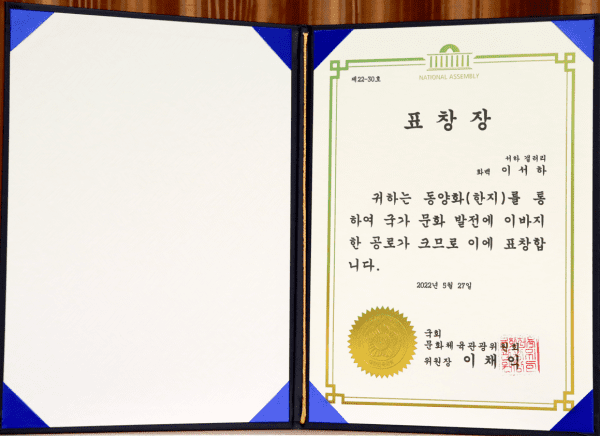 NATIONAL ASSEMBLY
제22-30호
표 창 장
서하 갤러리
화백 이 서 하
귀하는 동양화(한지)를 통
하여 국가 문화 발전에 이바지
한 공로가 크므로 이에 표창합
니다.
2022년 5월 27일
국회
문화체육관광위원회
위원장 이 채 익